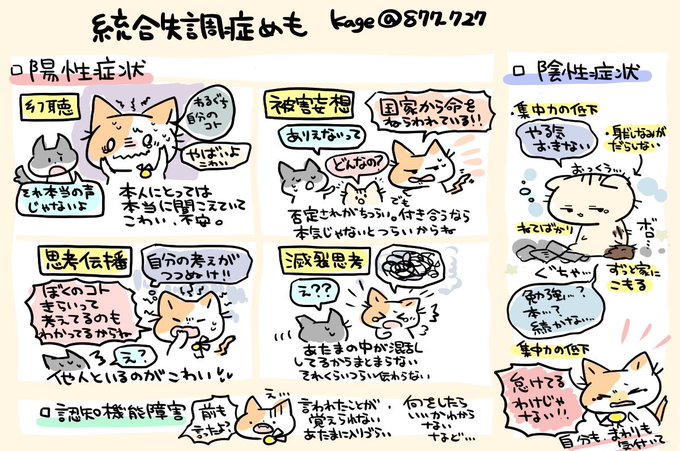 統合失調症めも kage@877_727
□陽性症状
幻聴
わるぐち
自分の
コト
やばいよ
こわい
それ本当の声
じゃないよ
本人にとっては
本当に聞こえていて
こわい、不安。
被害妄想
国家から命を
ねらわれている!!
ありえないって
どんなの?
でも
否定されがちつらい。付き合うなら
本気じゃないとつらいからね
思考伝播
自分の考えが
つつぬけ!!
ぼくのコト
きらいって
考えてるのも
わかってるからね
え?
他人といるのがこわい
滅裂思考
え??
あたまの中が混乱
してるからまとまらない
それくらいつらい伝わらない
□認知機能障害
前も
言ったよ?
え…
言われたことが
覚えられない
あたまに入りづらい
何をしたら
いいかわから
ない
など…
□陰性症状
・集中力の低下
やる気
おきない
・身だしなみが
だらしない
おっくう…
ボロ…
ねてばかり
ぐちゃ…
ずっと家に
こもる
勉強…?
本…?
続かない…
集中力の低下
怠けてる
わけじゃ
ない!!
自分も、まわりも
気付いて